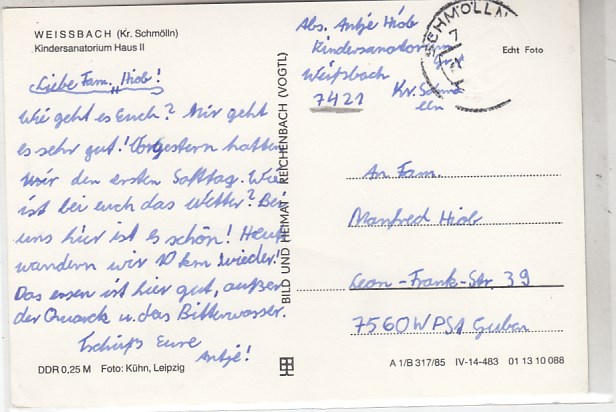 WEISSBACH (Kr. Schmölln)
Kindersanatorium Haus II
Liebe Fam. Hiob!
Wie geht es Euch? Mir geht
es sehr gut! Vorgestern hatten
wir den ersten Safttag. Wie
ist bei euch das Wetter? Bei
uns hier ist es schön! Heut
wandern wir 10 km wieder!
Das essen ist hier gut, außer
der Quarck u. das Bitterwasser.
Tschüß Eure
Antje!
DDR 0,25 M Foto: Kühn, Leipzig
BILD UND HEIMAT REICHENBACH (VOGTL)
Abs. Antje Hiob
Kindersanatorium
Weißbach
7421 Kr. Schmö
lln
SCHMÖLLN
7
Echt Foto
An Fam.
Manfred Hiob
Lean-Frank-Str. 39
7560 WPSt Guben
A 1/B 317/85 IV-14-483 01 13 10 088